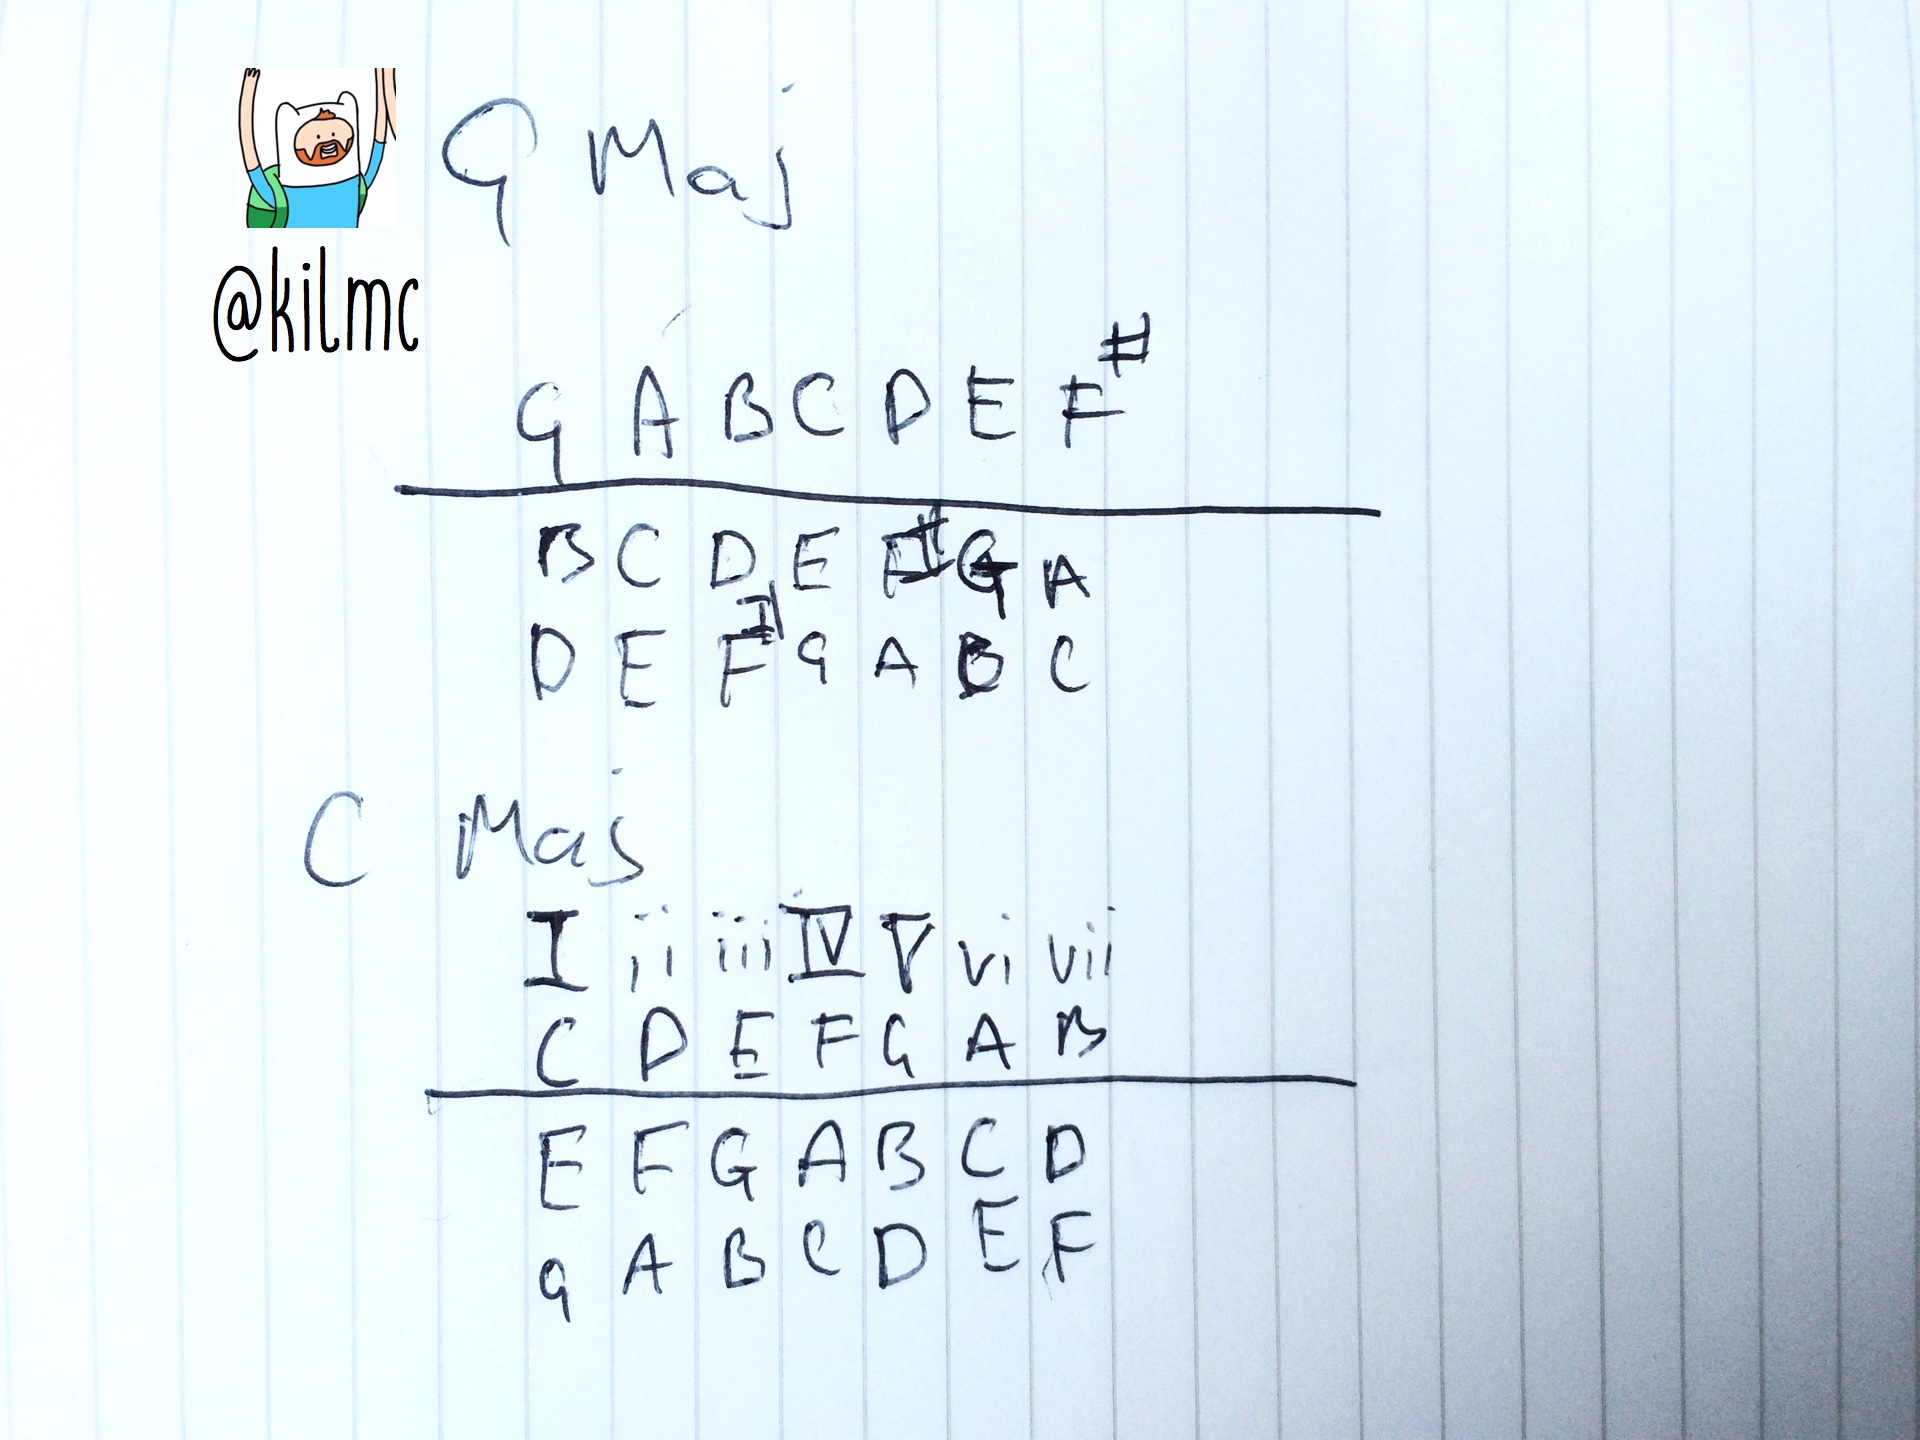 G Maj
@kilmc
G A B C D E F#
B C D E F# G A
D E F# G A B C
C Maj
I ii iii IV V vi vii
C D E F G A B
E F G A B C D
G A B C D E F